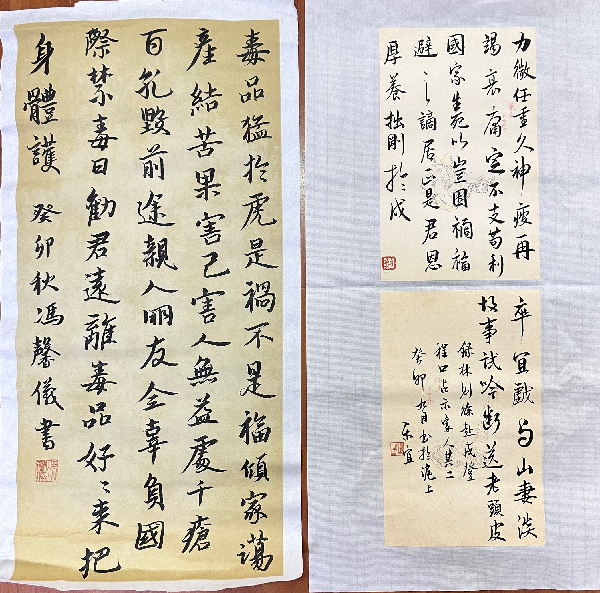 毒品猛於虎是禍不是福傾家蕩
產結苦果害己害人無益處千瘡
百孔毀前途親人朋友全辜負國
際禁毒日勸君遠離毒品好々來把
身體護 癸卯秋馮馨儀書
力微任重久神疲再
竭衰庸定不支苟利
國家生死以豈因禍福
避之謫居正是君恩
厚養拙刚於戍
卒宜戲与山妻談
故事試吟斷送老頭皮
錄林則徐赴戍登
程口占示家人其二
癸卯九月書於滬上
乐宜